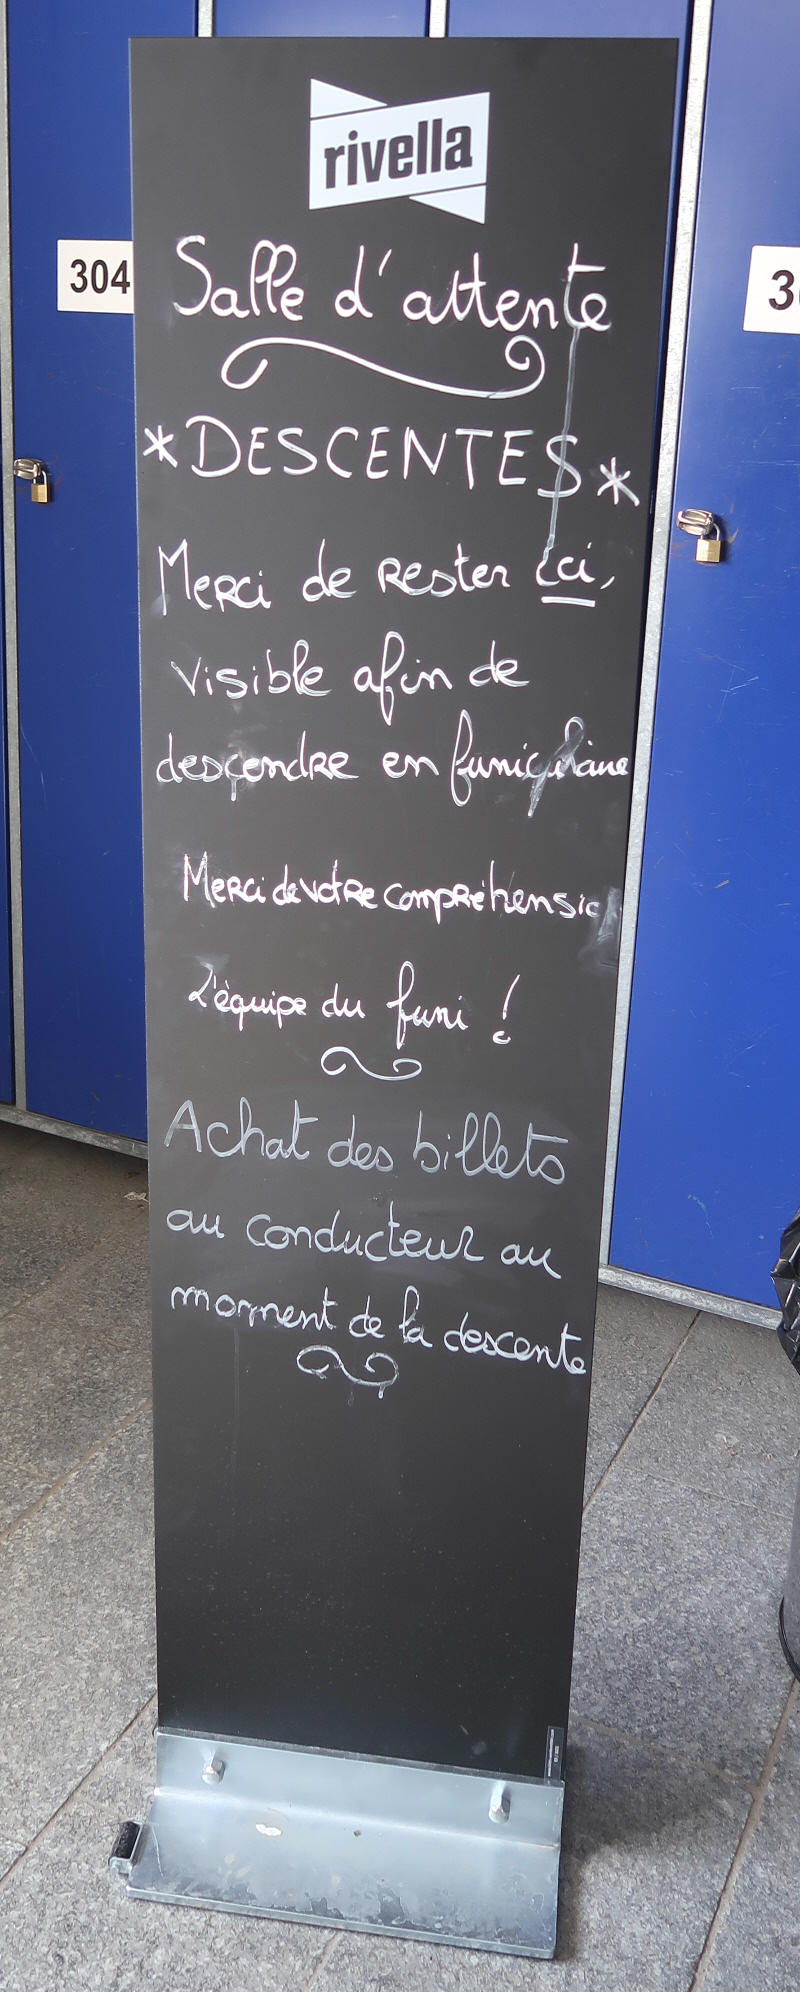 rivella
Salle d'attente
304
*DESCENTES*
Merci de rester ici,
visible afin de
descendre en funiculaire
Merci de votre compréhensio
L'équipe du funi !
Achat des billets
au conducteur au
moment de la descente